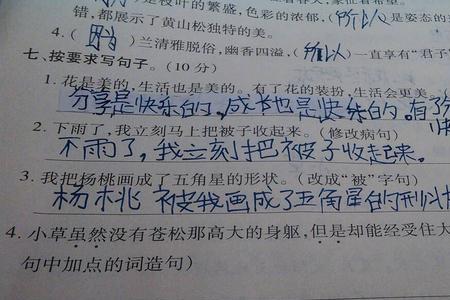 是枝叶的繁盛，色彩的浓郁，(所以)是姿态的
错，都展示了黄山松独特的美。
4.(因为)兰清雅脱俗，幽香四溢，(所以)一直享有“君子
七、按要求写句子。(10分)
1. 花是美的，生活也是美的。有了花的装扮，生活会更美。
分享是快乐的，成长也是快乐的。有了分
2. 下雨了，我立刻马上把被子收起来。(修改病句)
下雨了，我立刻把被子收起来。
3. 我把杨桃画成了五角星的形状。(改成“被”字句)
杨桃被我画成了五角星的形状
4. 小草虽然没有苍松那高大的身躯，但是却能经受住大
句中加点的词造句)